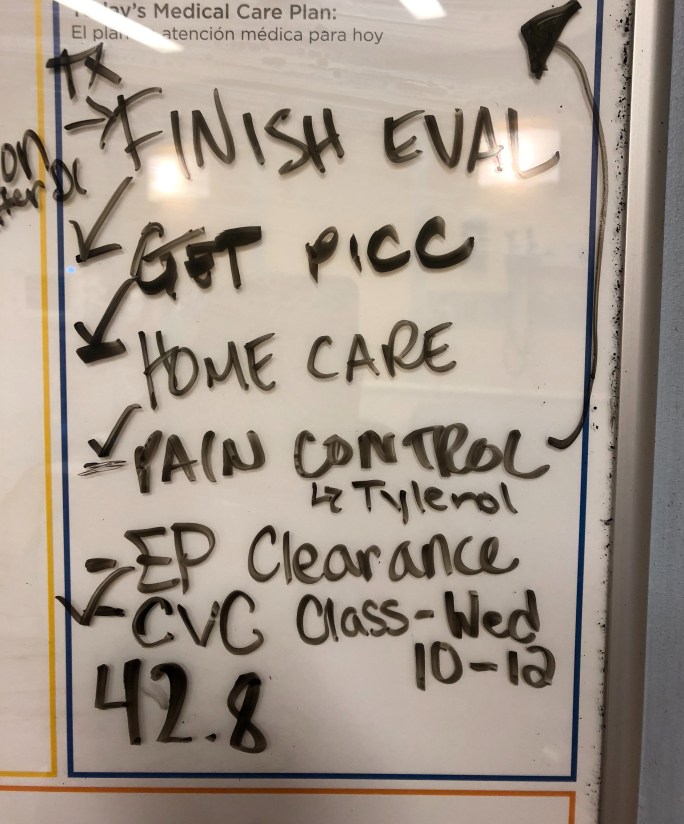 Today's Medical Care Plan:
El plan atención médica para hoy
TX
→ FINISH EVAL
on
✓ GET PICC
✓ HOME CARE
✓ PAIN CONTROL
↳ Tylenol
- EP Clearance
✓ - CVC Class - Wed
10-12
42.8